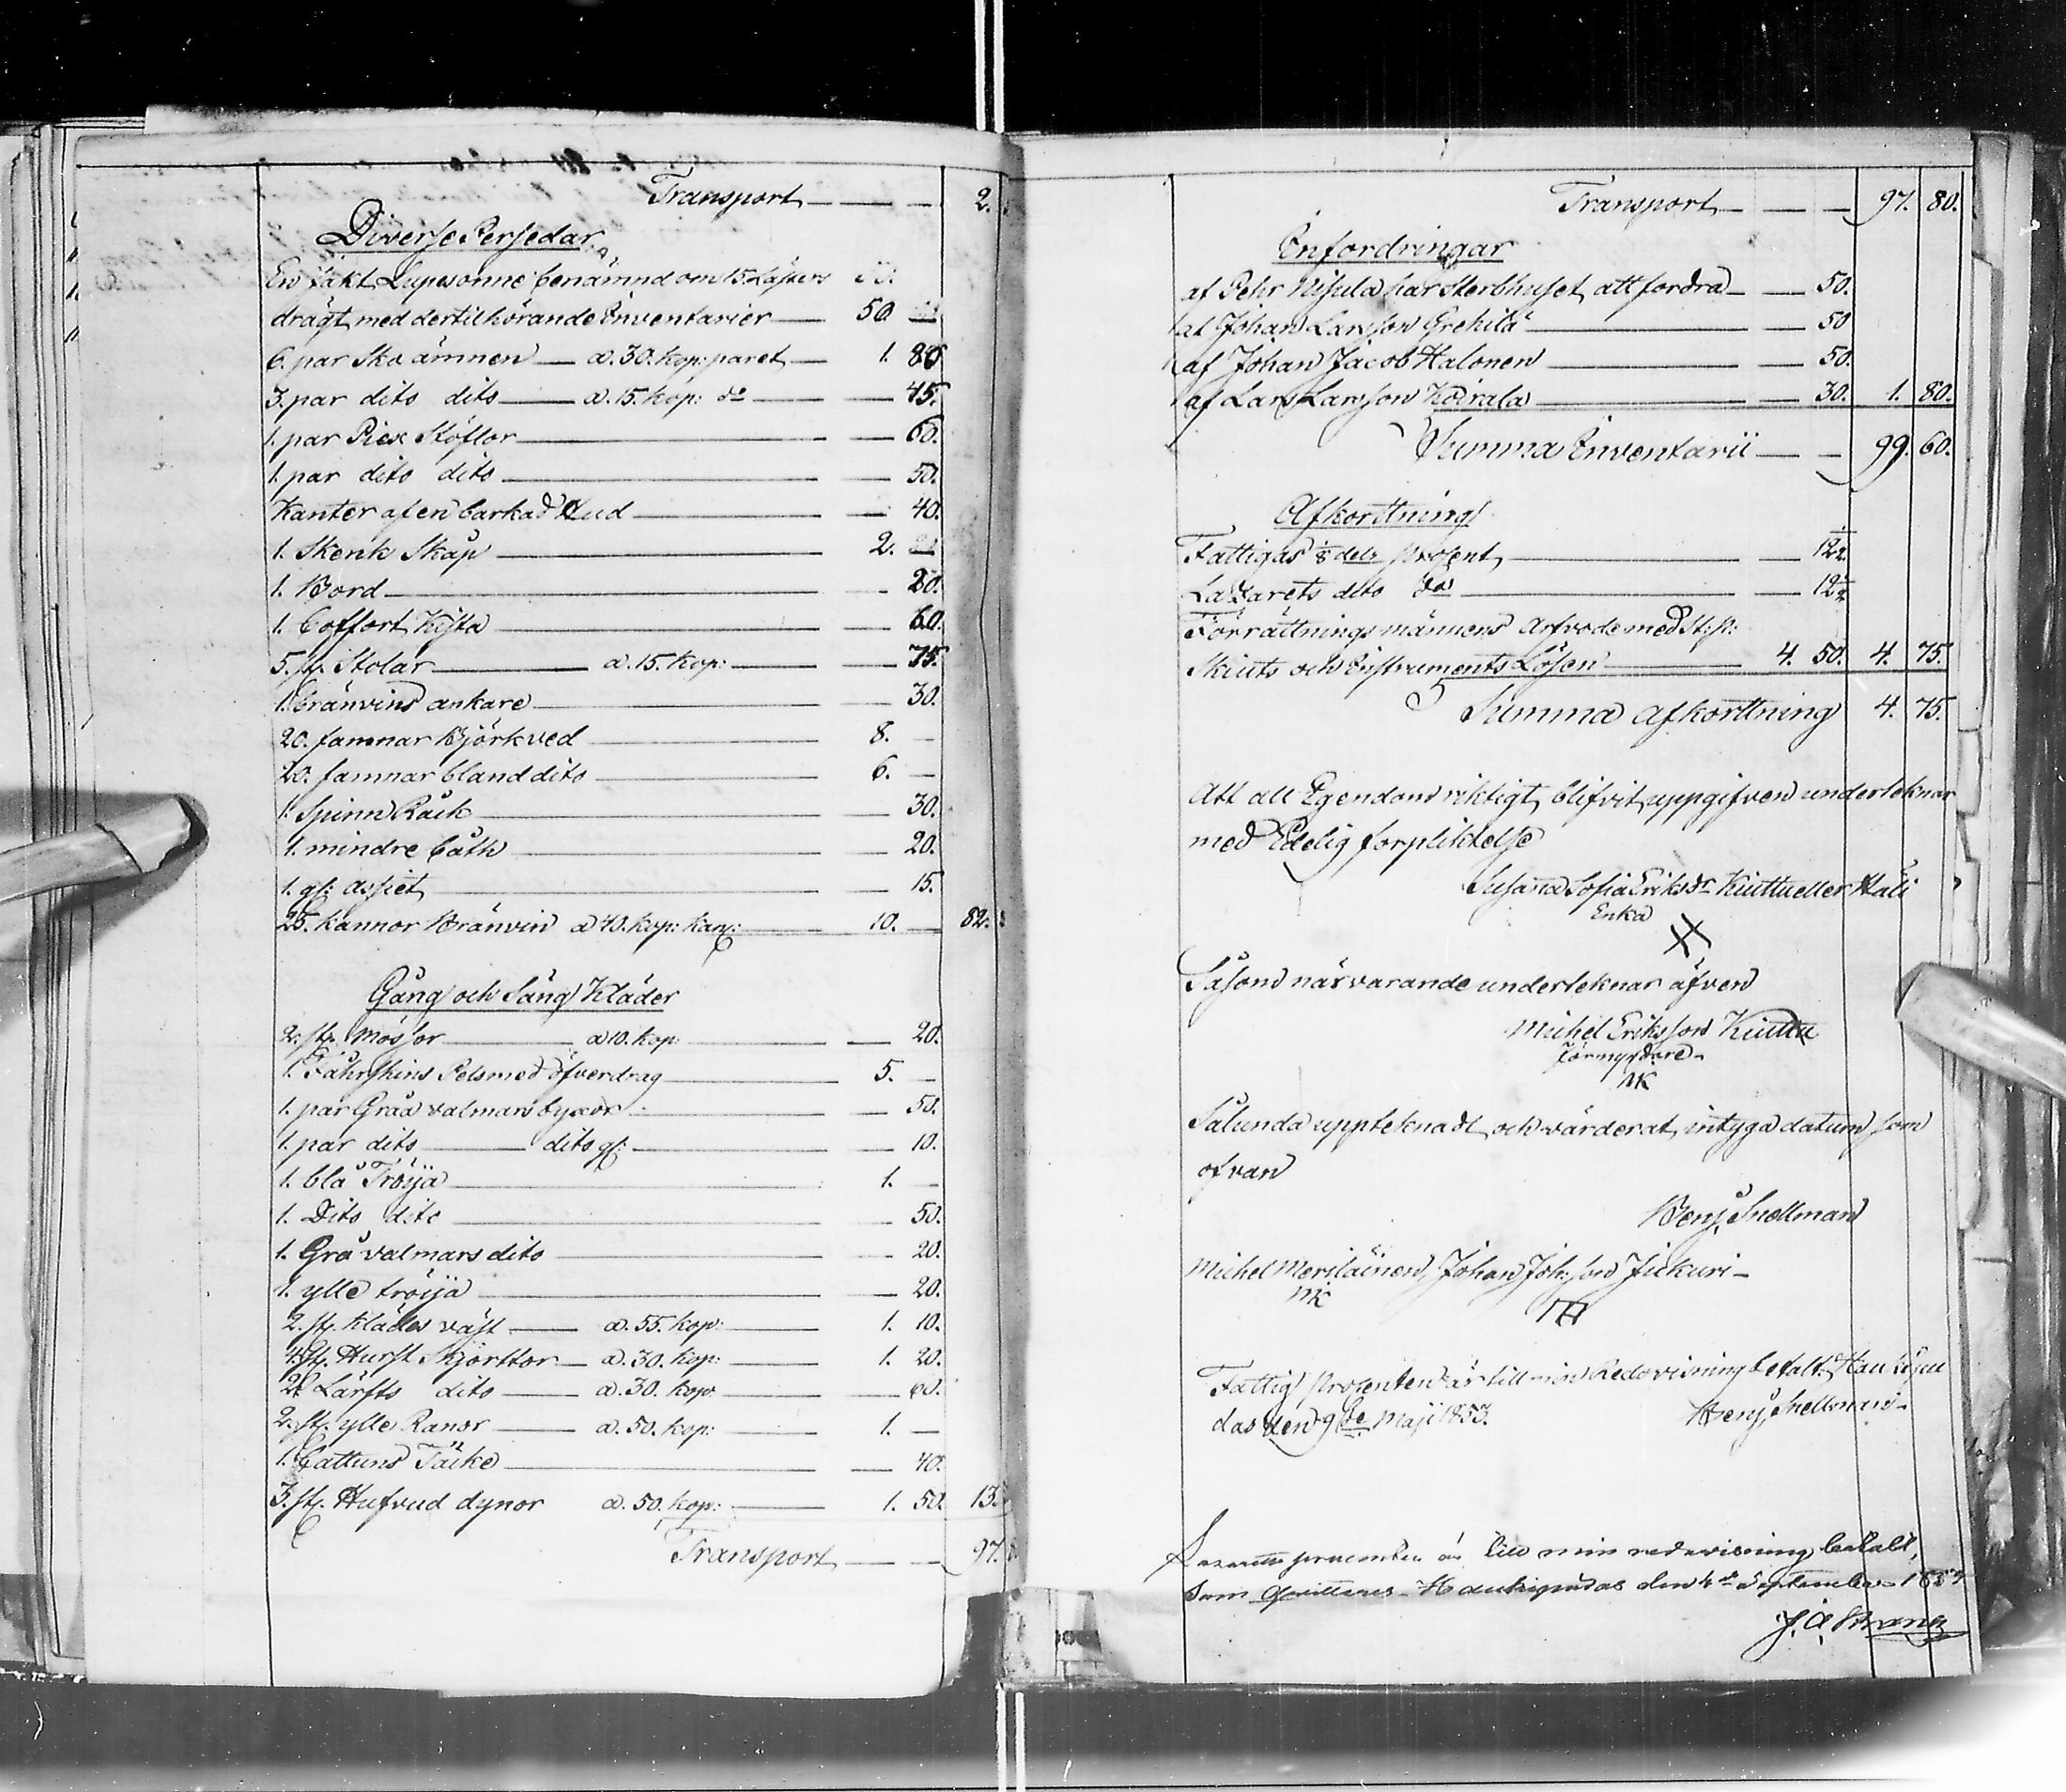 Transport — — 2.
Diverse Persedar
En Jakt Lupesonne benämnd om 15. Läster
drägt med dertilhörande Inventarier — 50. —
6. par Sko ämnen — a. 30. kop: paret — 1. 80.
3. par dito dito — a. 15. kop: do — 45.
1. par Piex Stöflor — 60.
1. par dito dito — 50.
Kanter af en barkad Hud — 40.
1. Skenk Skåp — 2. —
1. Bord — 20.
1. Coffort Kista — 60.
5. st. Stolar — a. 15. kop: — 75.
1. bränvins ankare — 30.
20. famnar Björkved — 8. —
20. famnar bland dito — 6. —
1. Spinn Råck — 30.
1. mindre båth — 20.
1. gl: aspiet — 15.
25. kannor Bränvin a 40. kop: kan: — 10. — 82.
Gång och Säng Kläder
2. st. Mössor — a 10. kop: — 20.
1. Fåhrskins Pels med öfverdrag — 5. —
1. par Gråa valmars byxor — 50.
1. par dito — dito gl: — 10.
1. blå Tröija — 1. —
1. Dito dito — 50.
1. Grå valmars dito — 20.
1. ylle tröija — 20.
2. st. Klädes väst — a. 55. kop: — 1. 10.
4. st. Hurst Skjorttor — a. 30. kop: — 1. 20.
2. Lärfts dito — a. 30. kop: — 60.
2. st. ylle Ranor — a. 50. kop: — 1. —
1. Cattuns Täcke — 40.
3. st. Hufvud dynor a. 50. kop: — 1. 50. 13.
Transport — — 97.
Transport — — 97. 80.
Infordringar
af Pehr Nisula har Sterbhuset att fordra — 50.
af Johan Larsson Grekilä — 50
af Johan Jacob Halonen — 50.
af Lars Larsson Koirala — 30. 1. 80.
Summa Inventarii — — 99. 60.
Afkorttning
Fattigas 1/8 dels prosent — 12 1/2
Lazarets dito do — 12 1/2
Förrättningsmännens Arfvode med St: p:
Skiuts och Instruments Lösen — 4. 50. 4. 75.
Summa afkorttning 4. 75.
Att all Egendom riktigt blifvit uppgifven underteknar
med Edelig förpliktelse
Susanna Sofia Eriksdr Kiuttu eller Hali
Enka
Såsom närvarande underteknar äfven
Michel Eriksson Kiuttu
förmyndare
MK
Sålunda uppteknadt och värderat, intyga datum som
ofvan
Benj. Snellman
Michel Meriläinen, Johan Joh:son Jukuri
MK
Fattig prosenten är till min Redovisning betalt. Haukipu
das den 9de Maji 1853. Benj. Snellman
Lazaretts procenten är till min redovisning betalt,
som qvitteras Haukipudas den 4de September 185